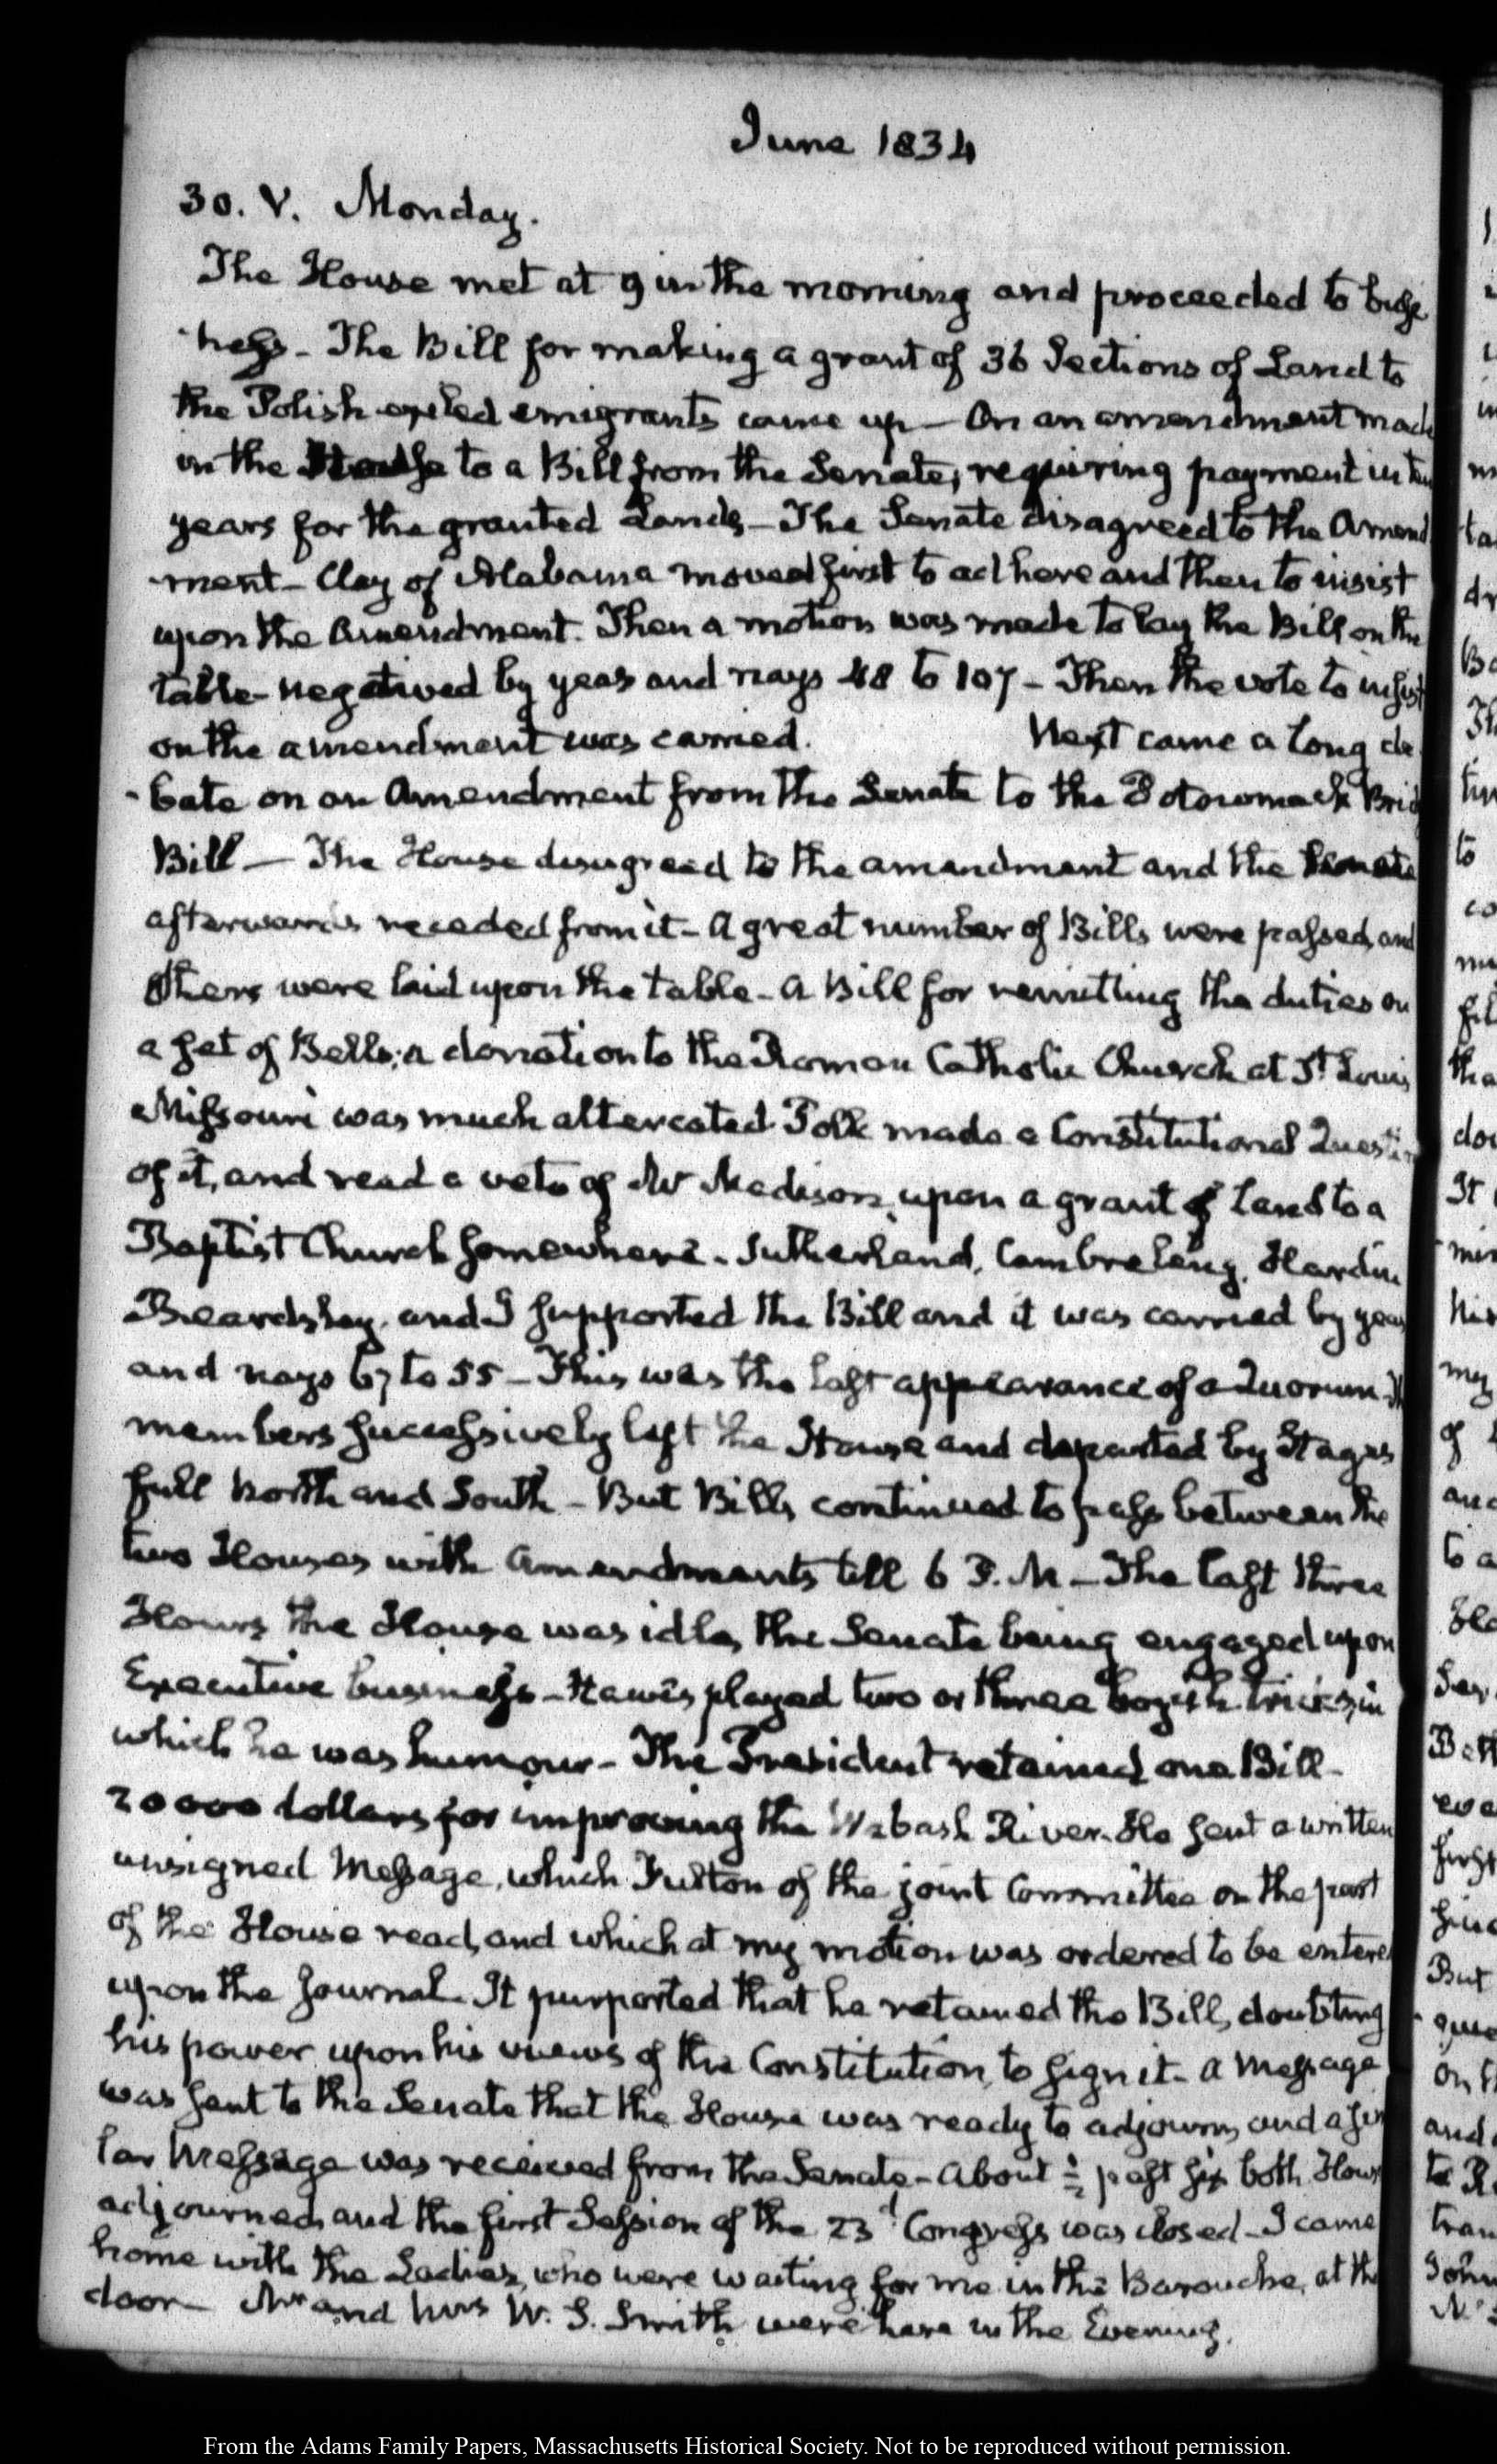 June 1834
30. V. Monday.
The House met at 9 in the morning and proceeded to busi
-ness - The Bill for making a grant of 36 Sections of Land to
the Polish exiled emigrants came up - On an amendment made
in the House to a Bill from the Senate, requiring payment in ten
years for the granted Lands - The Senate disagreed to the Amend
-ment - Clay of Alabama moved first to adhere and then to insist
upon the Amendment. Then a motion was made to lay the Bill on the
table - negatived by yeas and nays 48 to 107 - Then the vote to insist
on the amendment was carried. Next came a long de
-bate on an Amendment from the Senate to the Potowmack Bridge
Bill - The House disagreed to the amendment and the Senate
afterwards receded from it - A great number of Bills were passed, and
others were laid upon the table - A Bill for remitting the duties on
a set of Bells; a donation to the Roman Catholic Church at St. Louis
Missouri was much altercated. Polk made a Constitutional Question
of it, and read a veto of Mr Madison, upon a grant of Land to a
Baptist Church somewhere. Sutherland, Cambreleng, Hardin
Beardsley, and I supported the Bill and it was carried by yeas
and nays 67 to 55 - This was the last appearance of a Quorum The
members successively left the House and departed by Stages
full North and South - But Bills continued to pass between the
two Houses with Amendments till 6 P.M - The last three
Hours the House was idle, the Senate being engaged upon
Executive business - Hawes played two or three boyish tricks, in
which he was humour - The President retained one Bill -
20000 dollars for improving the Wabash River. He sent a written
unsigned Message, which of the joint Committee on the part
of the House read, and which at my motion was ordered to be entered
upon the Journal. It purported that he retained the Bill, doubting
his power upon his views of the Constitution, to sign it - A Message
was sent to the Senate that the House was ready to adjourn, and a simi
lar Message was received from the Senate - About ½ past six both Houses
adjourned, and the first Session of the 23d Congress was closed - I came
home with the Ladies, who were waiting for me in the Barouche, at the
door - Mr and Mrs W. S. Smith were here in the Evening.
From the Adams Family Papers, Massachusetts Historical Society. Not to be reproduced without permission.